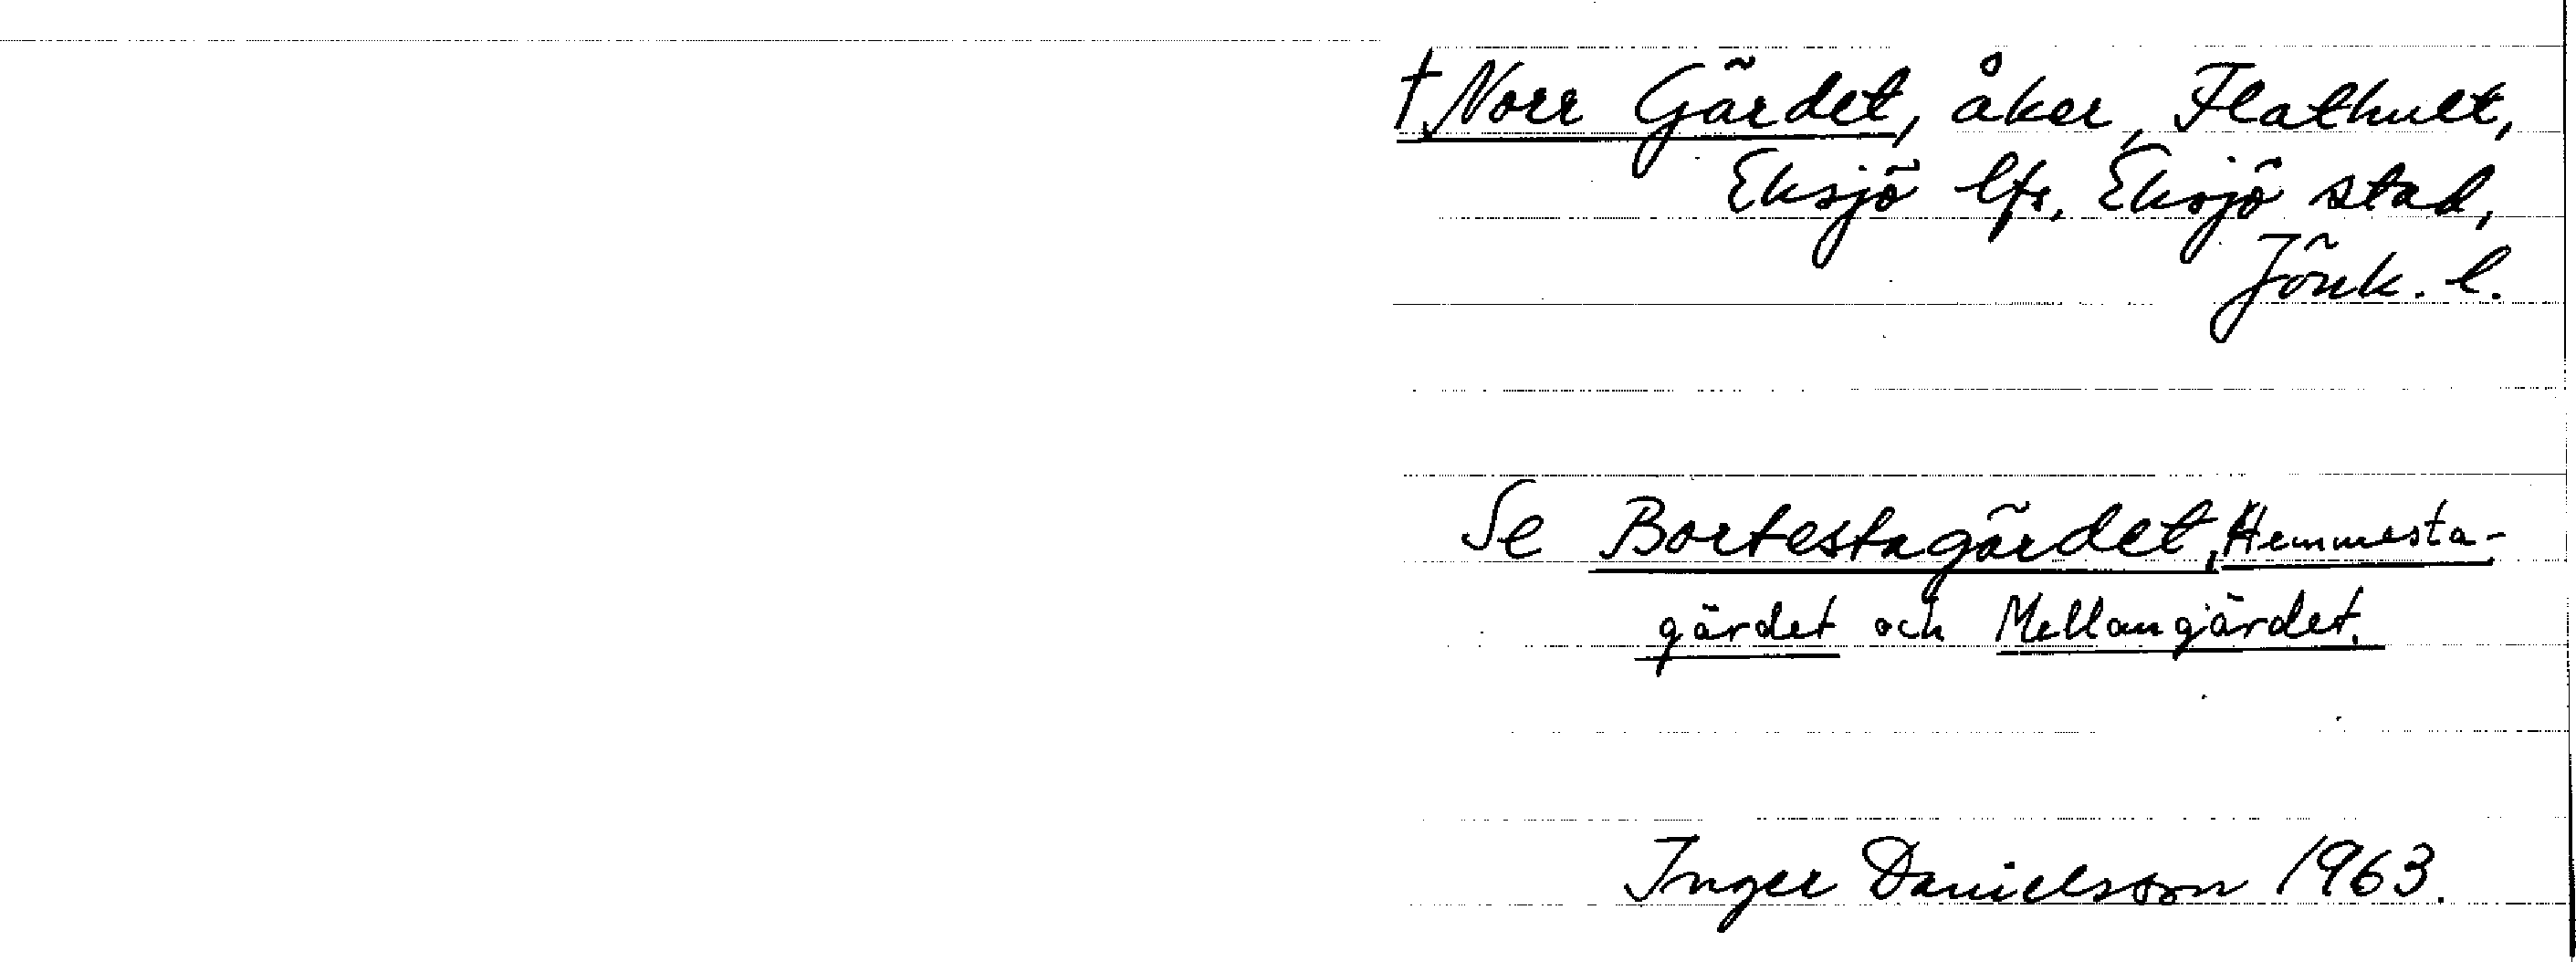 † Norr Gärdet, åker, Flathult,
Eksjö lfs, Eksjö stad,
Jönk. l.
Se Bortestagärdet, Hemmesta-
gärdet och Mellangärdet.
Inger Danielsson 1963.